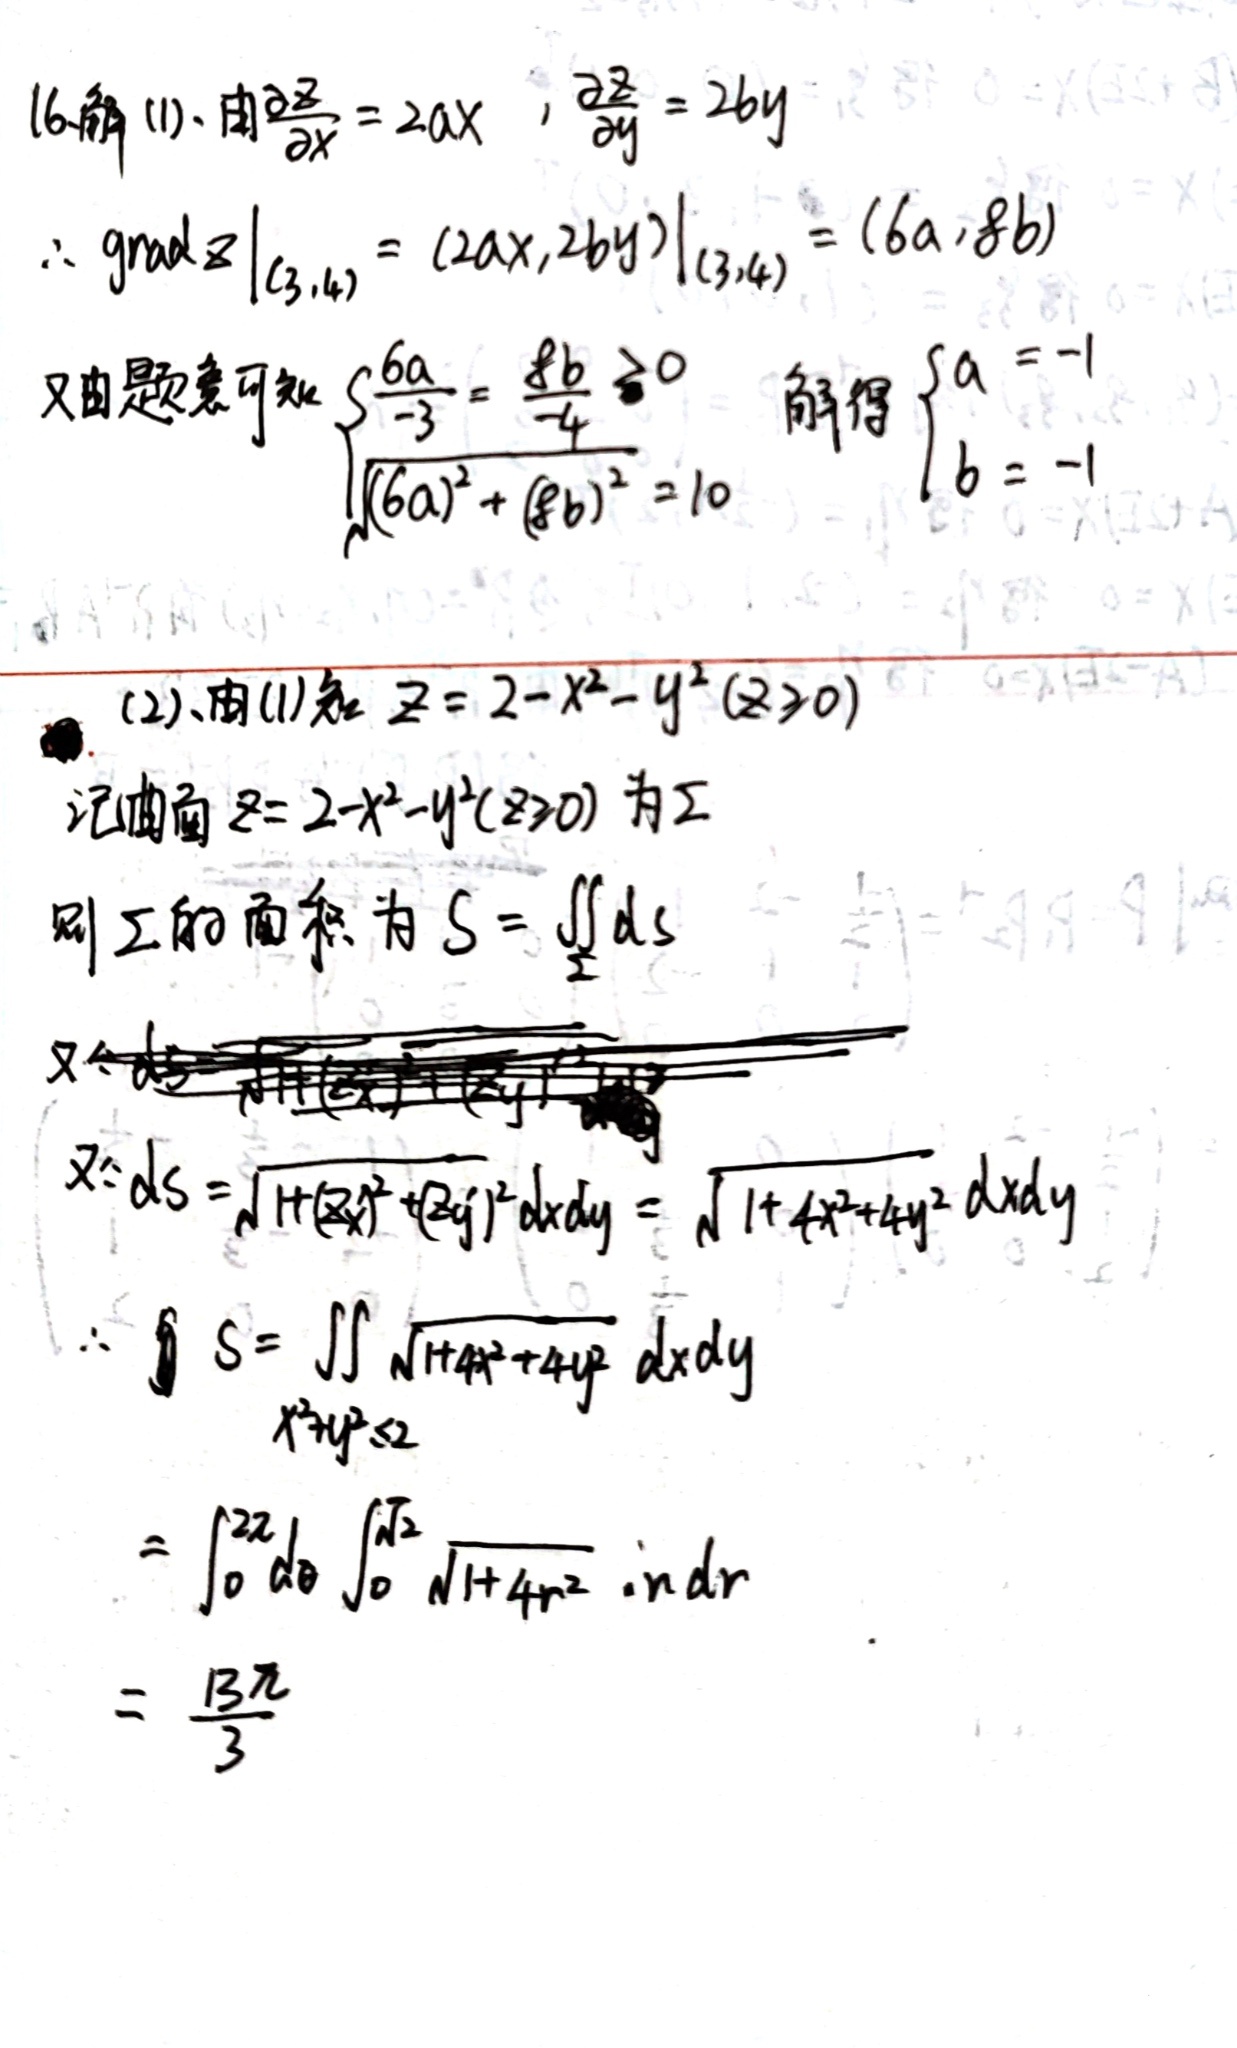 16.解 (1)、由∂z/∂x = 2ax , ∂z/∂y = 2by
∴ grad z|(3,4) = (2ax, 2by)|(3,4) = (6a, 8b)
又由题意可知 { 6a/-3 = 8b/-4 ≥ 0 解得 { a = -1
√((6a)² + (8b)²) = 10 b = -1
(2)、由(1)知 z = 2-x²-y² (z≥0)
记曲面 z = 2-x²-y² (z≥0) 为Σ
则Σ的面积为 S = ∬Σ ds
又∵ ds = √(1+(z'x)²+(z'y)²) dxdy = √(1+4x²+4y²) dxdy
∴ S = ∬ √(1+4x²+4y²) dxdy
x²+y²≤2
= ∫₀^2π dθ ∫₀^√2 √(1+4r²) ·r dr
= 13π/3